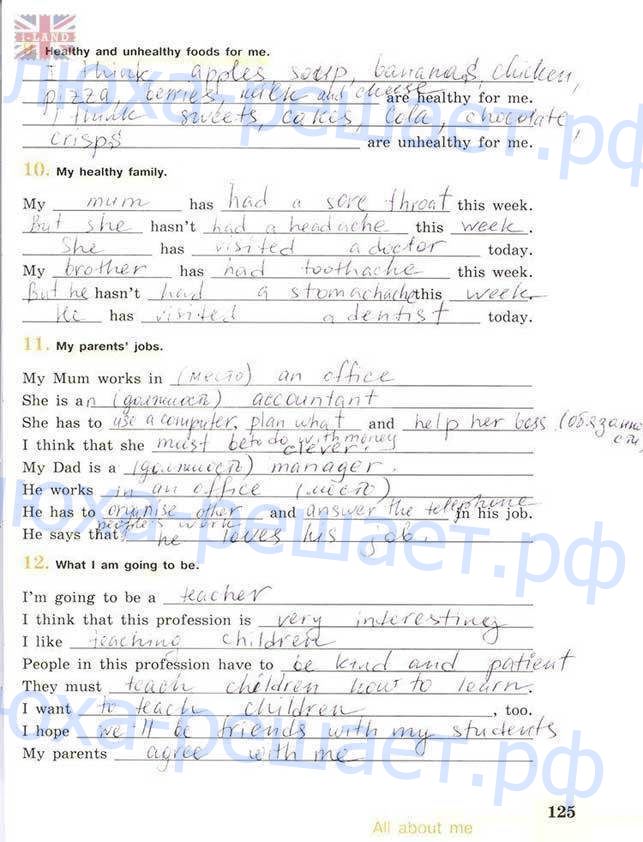 I-LAND
Healthy and unhealthy foods for me.
I think apples, soup, bananas, chicken,
pizza, berries, milk and cheese are healthy for me.
I think sweets, cakes, cola, chocolate,
crisps are unhealthy for me.
10. My healthy family.
My mum has had a sore throat this week.
But she hasn't had a headache this week.
She has visited a doctor today.
My brother has had toothache this week.
But he hasn't had a stomachache this week.
He has visited a dentist today.
11. My parents' jobs.
My Mum works in (место) an office
She is an (должность) accountant
She has to use a computer, plan what and help her boss (обязанности)
to do with money
I think that she must be clever.
My Dad is a (должность) manager.
He works in an office (место)
He has to organise other and answer the telephone in his job.
people's work
He says that he loves his job.
12. What I am going to be.
I'm going to be a teacher
I think that this profession is very interesting
I like teaching children
People in this profession have to be kind and patient
They must teach children how to learn.
I want to teach children, too.
I hope we'll be friends with my students
My parents agree with me
125
All about me
люха-решает.рф
люха-решает.рф
люха-решает.рф